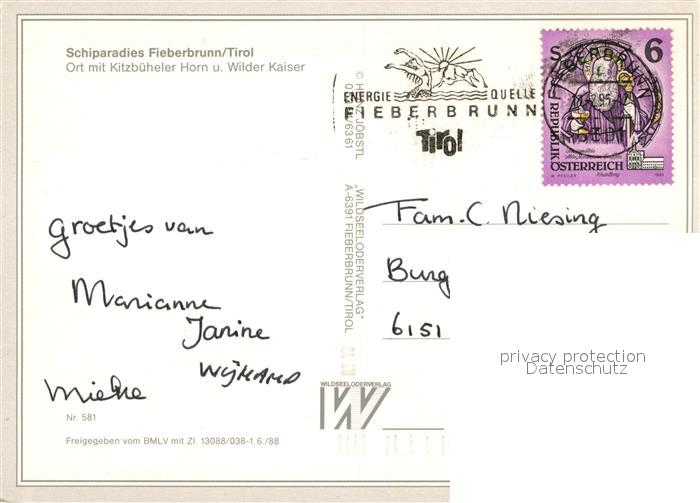 Schiparadies Fieberbrunn/Tirol
Ort mit Kitzbüheler Horn u. Wilder Kaiser
ENERGIE QUELLE
FIEBERBRUNN
Tirol
S 6
REPUBLIK
ÖSTERREICH
FIEBERBRUNN
95
Groetjes van
Marianne
Janine
Wijnand
Mieke
Nr. 581
Freigegeben vom BMLV mit Zl. 13088/038-1.6./88
JÖBSTL
"WILDSEELODERVERLAG"
A-6391 FIEBERBRUNN/TIROL
WILDSEELODERVERLAG
W
Fam. C. Niesing
Burg
6151
privacy protection
Datenschutz